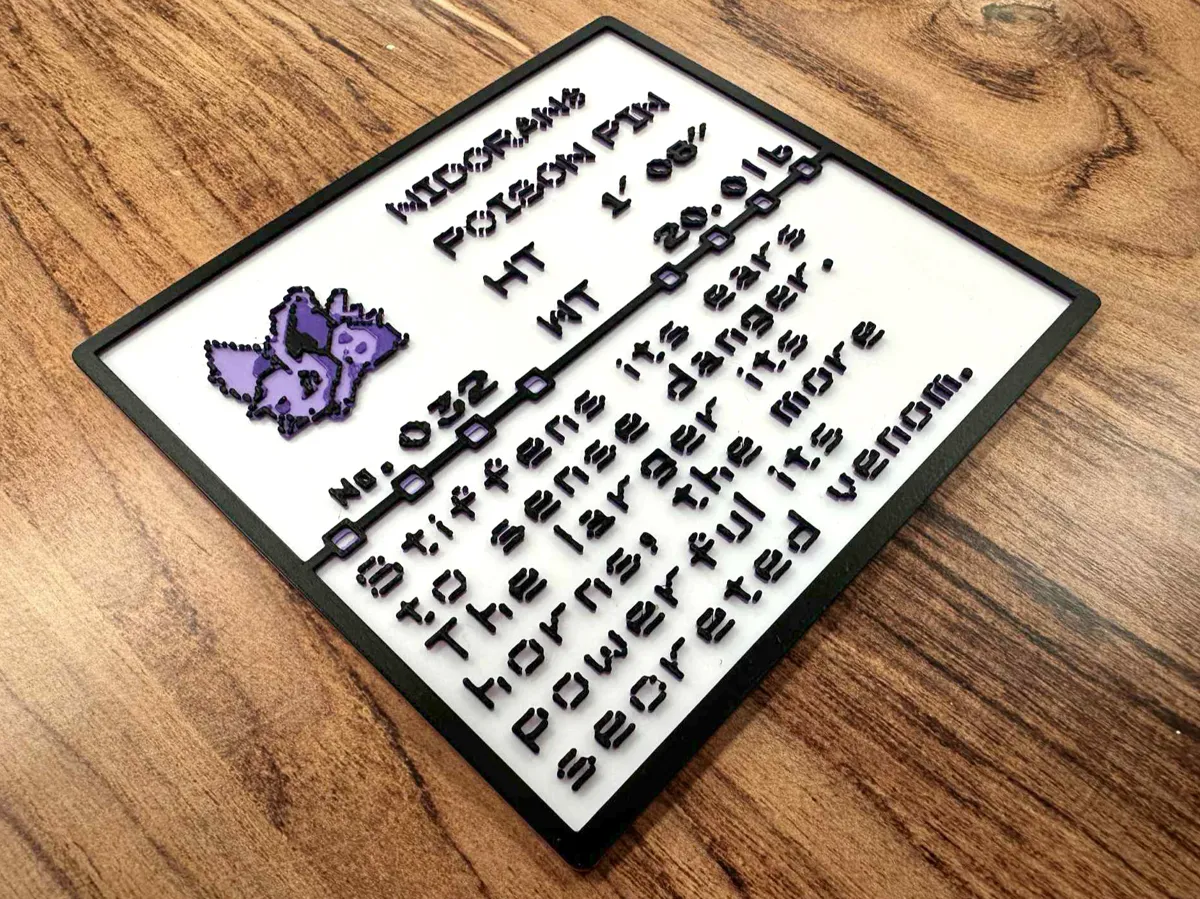 NIDORAN♂
POISON PIN
HT 1'08"
WT 20.0lb
No. 032
Stiffens its ears
to sense danger.
The larger its
horns, the more
powerful its
secreted venom.